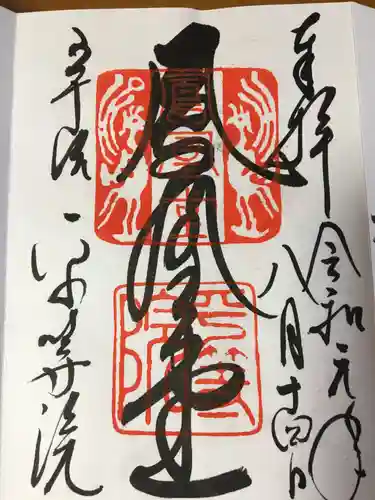 奉拝
令和元年
八月十四日
鳳凰堂
宇治
平等院